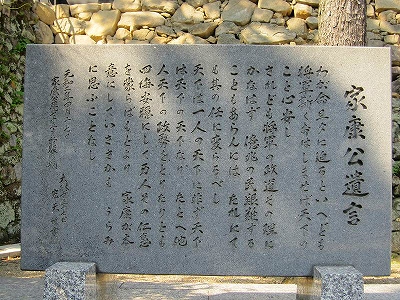 家康公遺言
わが命旦夕に迫るといへども
将軍斯く御座しませば天下の
こと心安し
されども将軍の政道その理に
かなはず 億兆の民艱難する
こともあらんには たれにて
も其の任に変らるべし
天下は一人の天下に非ず 天下
は天下の天下なり たとへ他
人天下の政務をとりたりとも
四海安穏にして万人その仁恵
を蒙らばもとより 家康が本
意にしていささかも うらみ
に思ふことなし
元和二年四月十七日